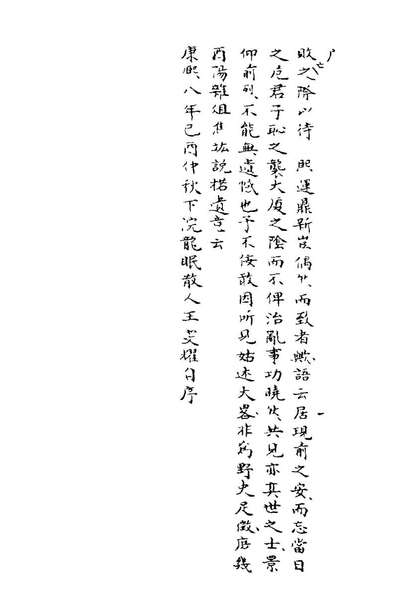 敗之際以待　熙運鼎新豈偶然而致者歟語云居現前之安而忘當日
之危君子恥之襲大廈之陰而不俾治亂事功曉然共見亦真世之士景
仰前烈不能無遺憾也予不佞敢因所見姑述大畧非為野史足徵庶幾
酉陽雜俎焦竑說楛遺意云
康熙八年己酉仲秋下浣龍眠散人王耀自序